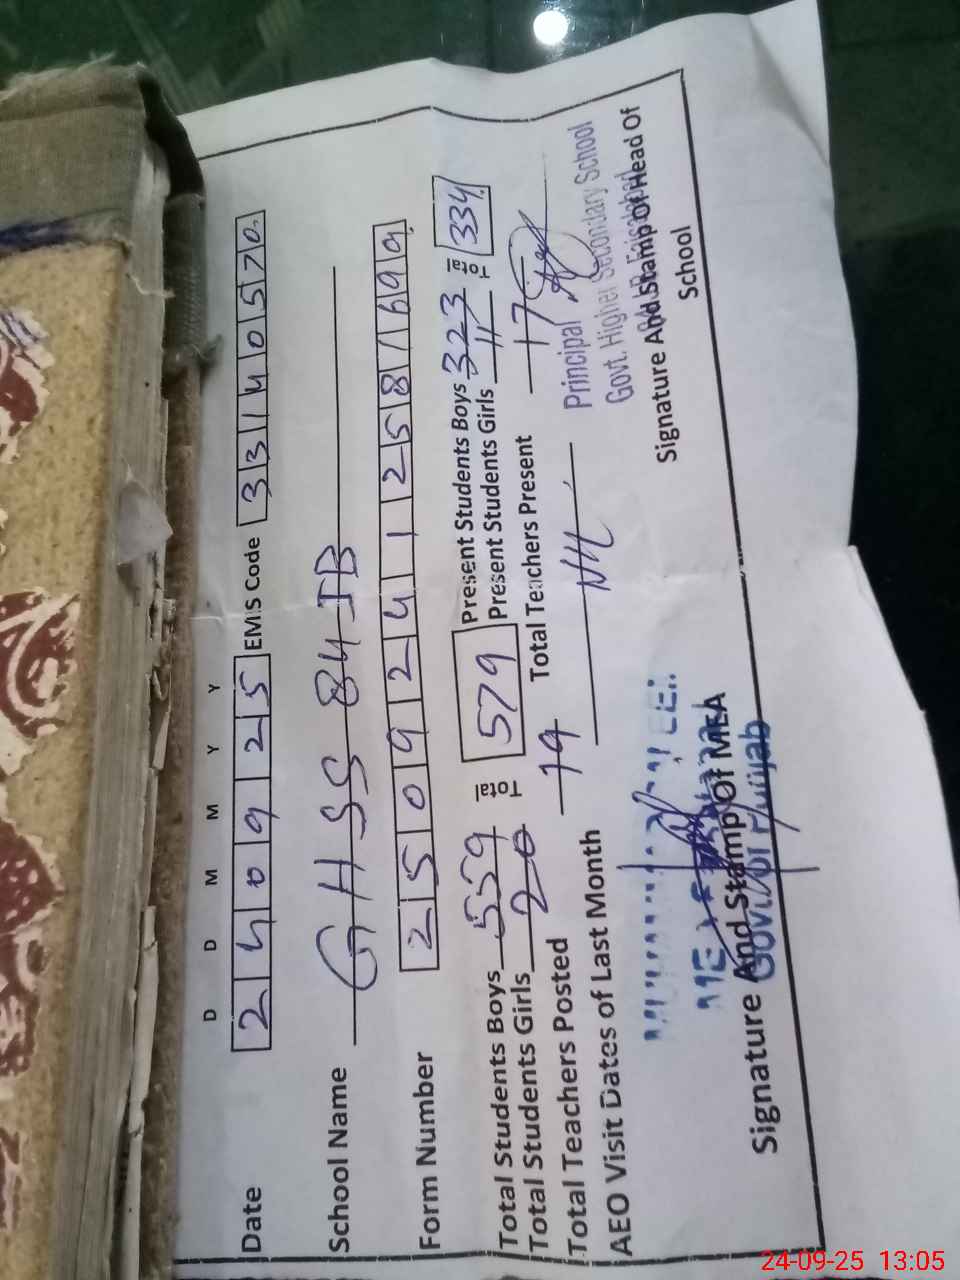 D D M M Y Y
Date 2 4 0 9 2 5 EMIS Code 3 3 1 4 0 5 7 0
School Name GHSS 84 JB
Form Number 2 5 0 9 2 4 1 1 2 5 8 1 6 9 9
Total Students Boys 559 Total 579 Present Students Boys 323 Total 334
Total Students Girls 20 Present Students Girls 11
Total Teachers Posted 19 Total Teachers Present 17
AEO Visit Dates of Last Month Nil
Principal
Govt. Higher Secondary School
84 J.B Faisalabad
Signature And Stamp Of Head Of
School
Govt. of Punjab
Signature And Stamp Of MEA
24-09-25 13:05